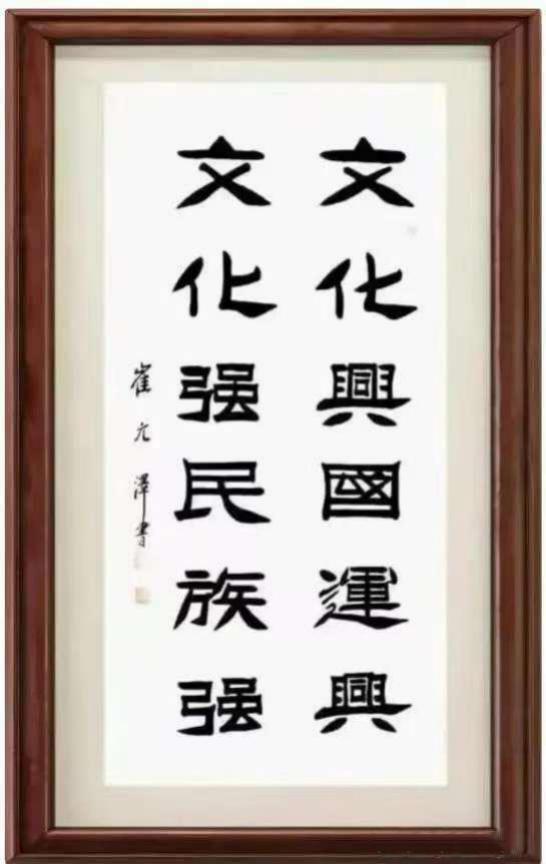 文化興國運興
文化强民族强
崔元澤書